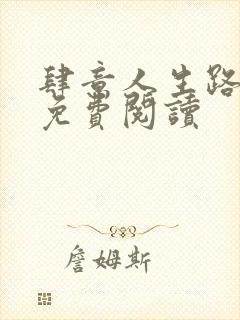 肆意人生路
免費閱讀
詹姆斯